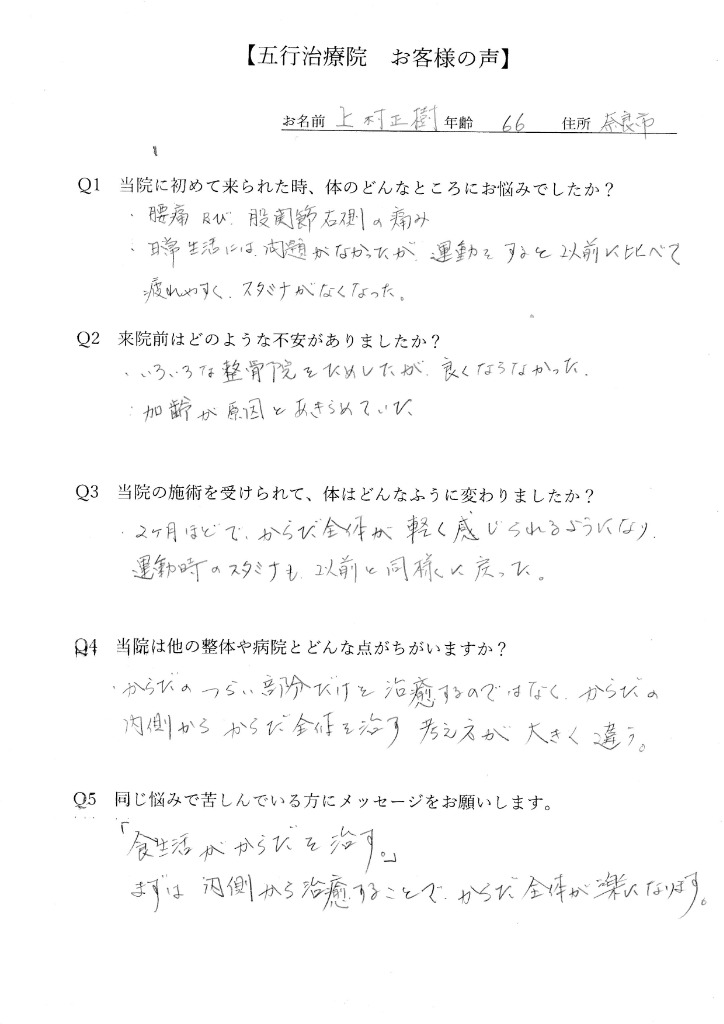 【五行治療院　お客様の声】
お名前 上村正樹 年齢 66 住所 奈良市
Q1 当院に初めて来られた時、体のどんなところにお悩みでしたか？
・腰痛及び、股関節右側の痛み
・日常生活には、問題がなかったが、運動をすると以前に比べて
疲れやすく、スタミナがなくなった。
Q2 来院前はどのような不安がありましたか？
・いろいろな整骨院をためしたが、良くならなかった。
・加齢が原因とあきらめていた
Q3 当院の施術を受けられて、体はどんなふうに変わりましたか？
・2ヶ月ほどで、からだ全体が軽く感じられるようになり、
運動時のスタミナも、以前と同様に戻った。
Q4 当院は他の整体や病院とどんな点がちがいますか？
・からだのつらい部分だけを治癒するのではなく、からだの
内側からからだ全体を治す考え方が大きく違う。
Q5 同じ悩みで苦しんでいる方にメッセージをお願いします。
「食生活がからだを治す。」
まずは内側から治癒することで、からだ全体が楽になります。